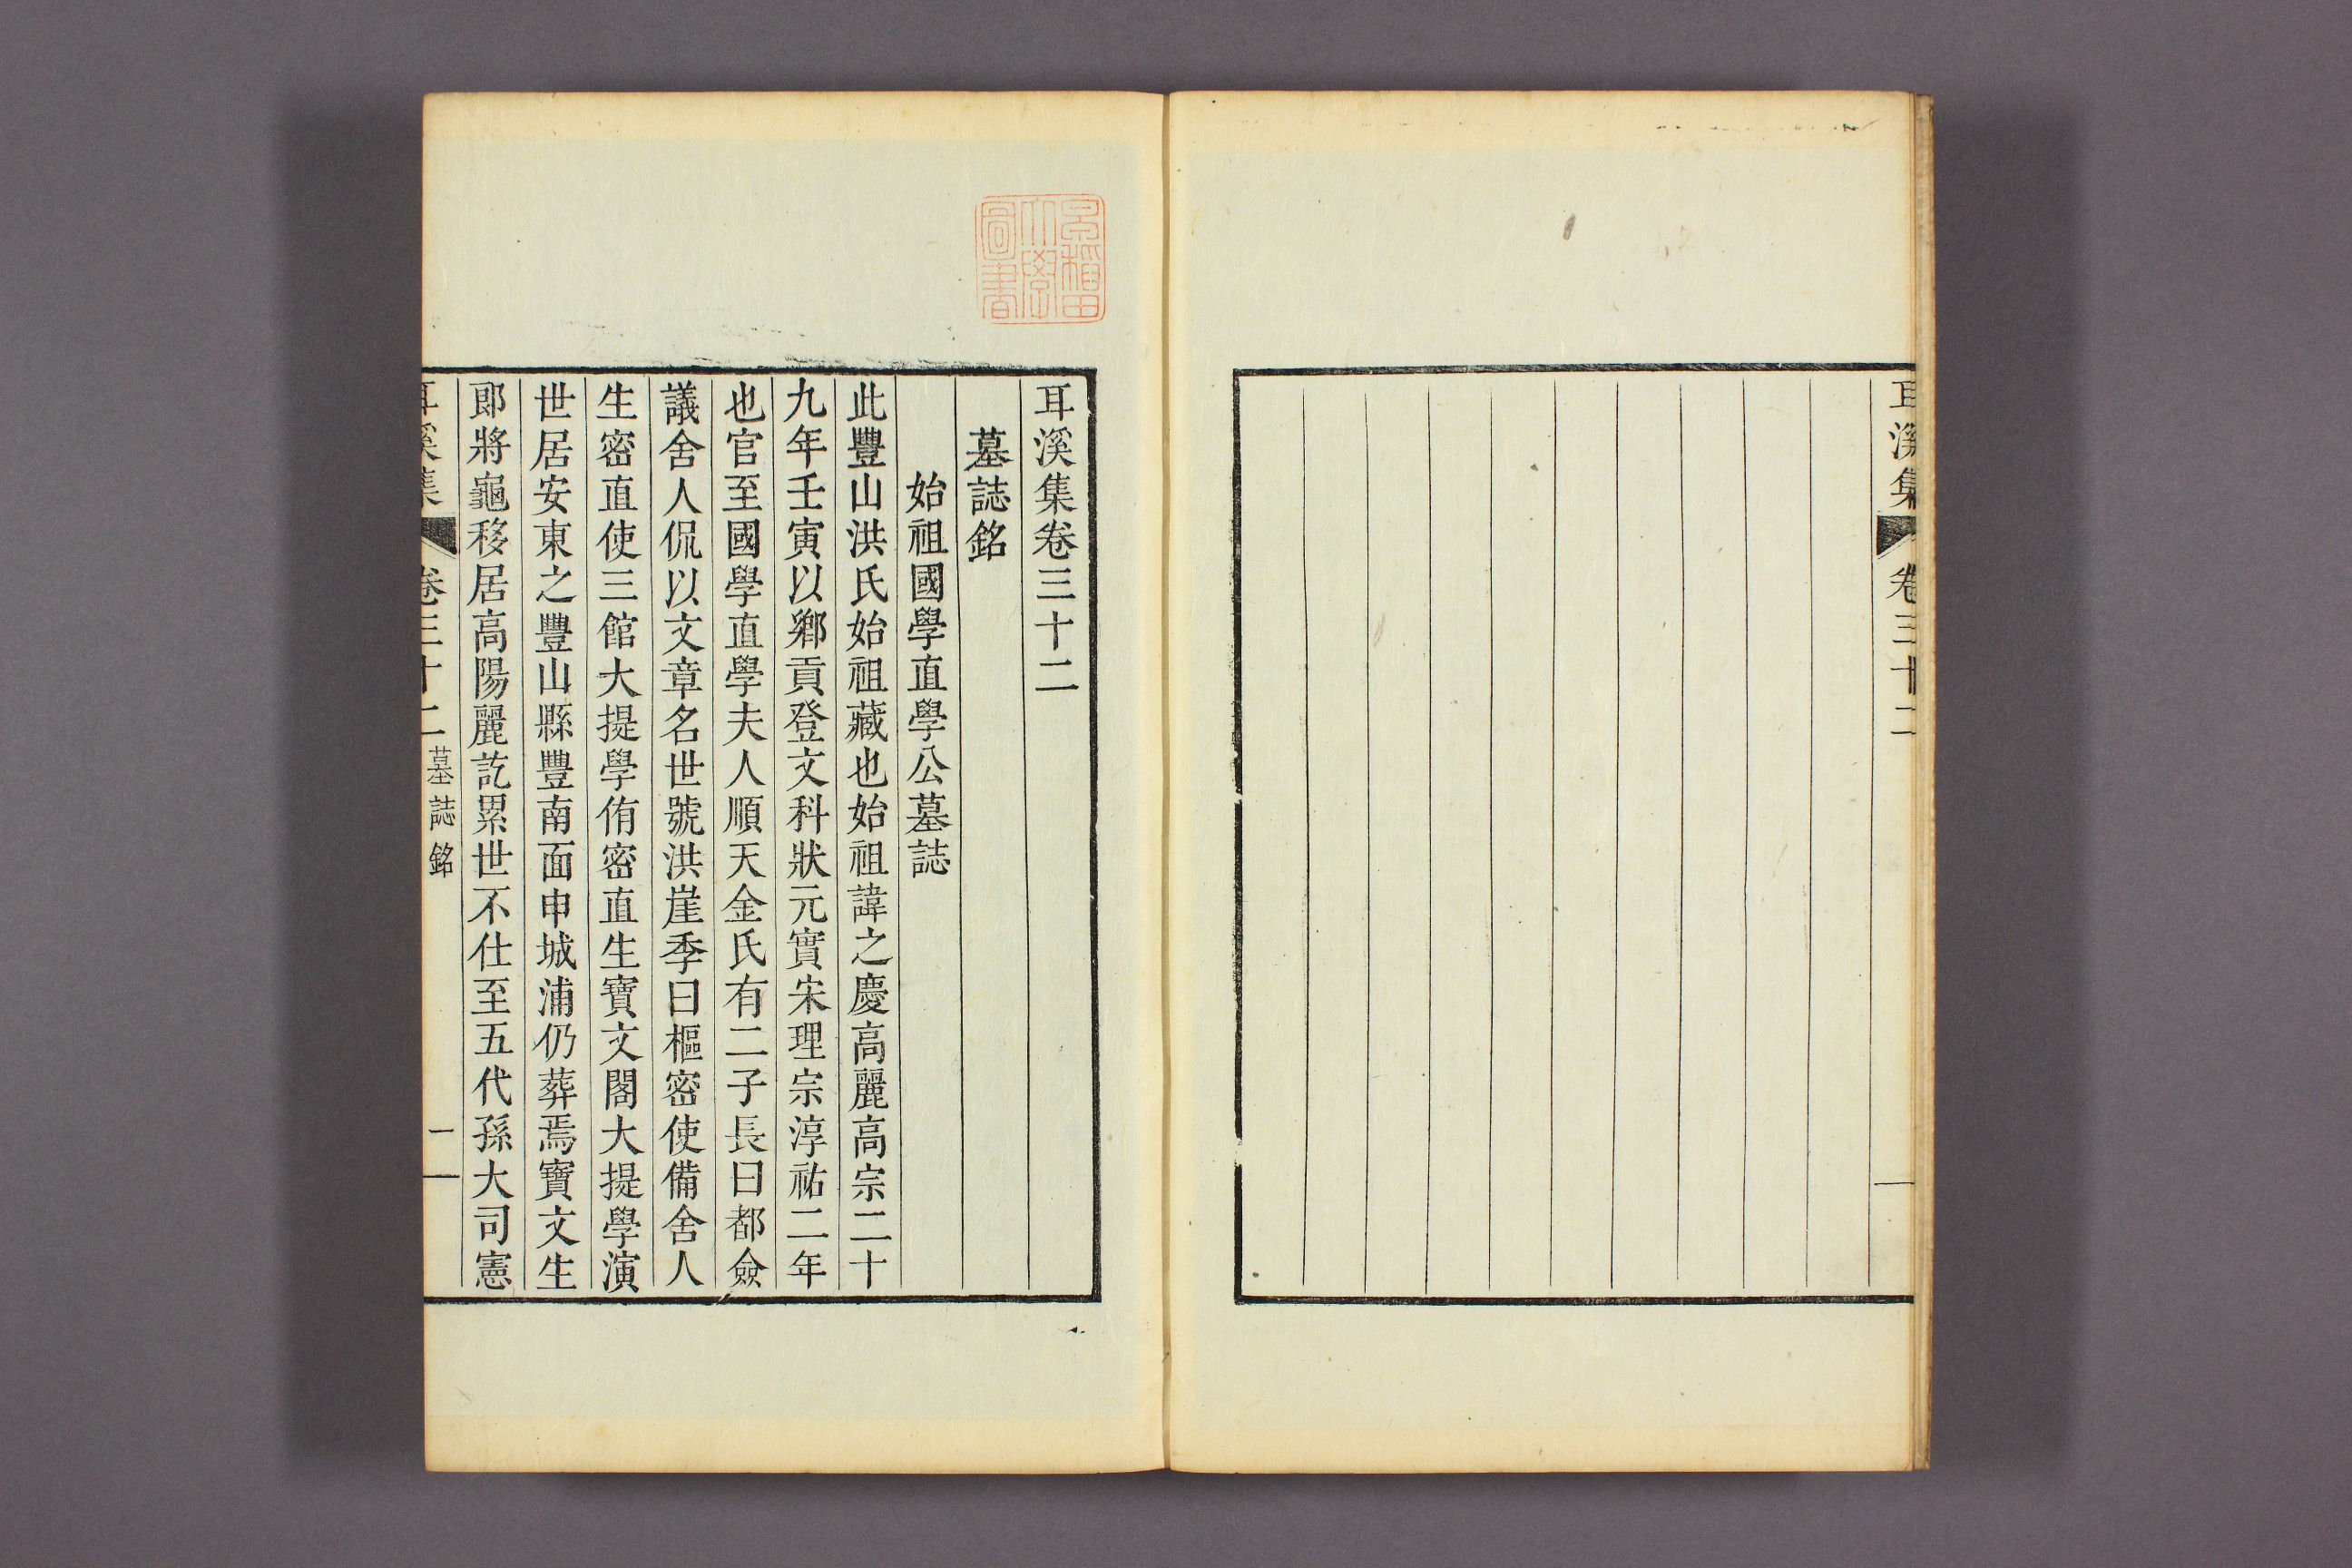 耳溪集 卷三十二
早稻田大學圖書
耳溪集卷三十二
墓誌銘
始祖國學直學公墓誌
此豐山洪氏始祖藏也始祖諱之慶高麗高宗二十
九年壬寅以鄉貢登文科狀元實宋理宗淳祐二年
也官至國學直學夫人順天金氏有二子長曰都僉
議舍人侃以文章名世號洪崖季曰樞密使備舍人
生密直使三館大提學侑密直生寶文閣大提學演
世居安東之豐山縣豐南面申城浦仍葬焉寶文生
郎將龜移居高陽麗訖累世不仕至五代孫大司憲
耳溪集 卷三十二 墓誌銘 一